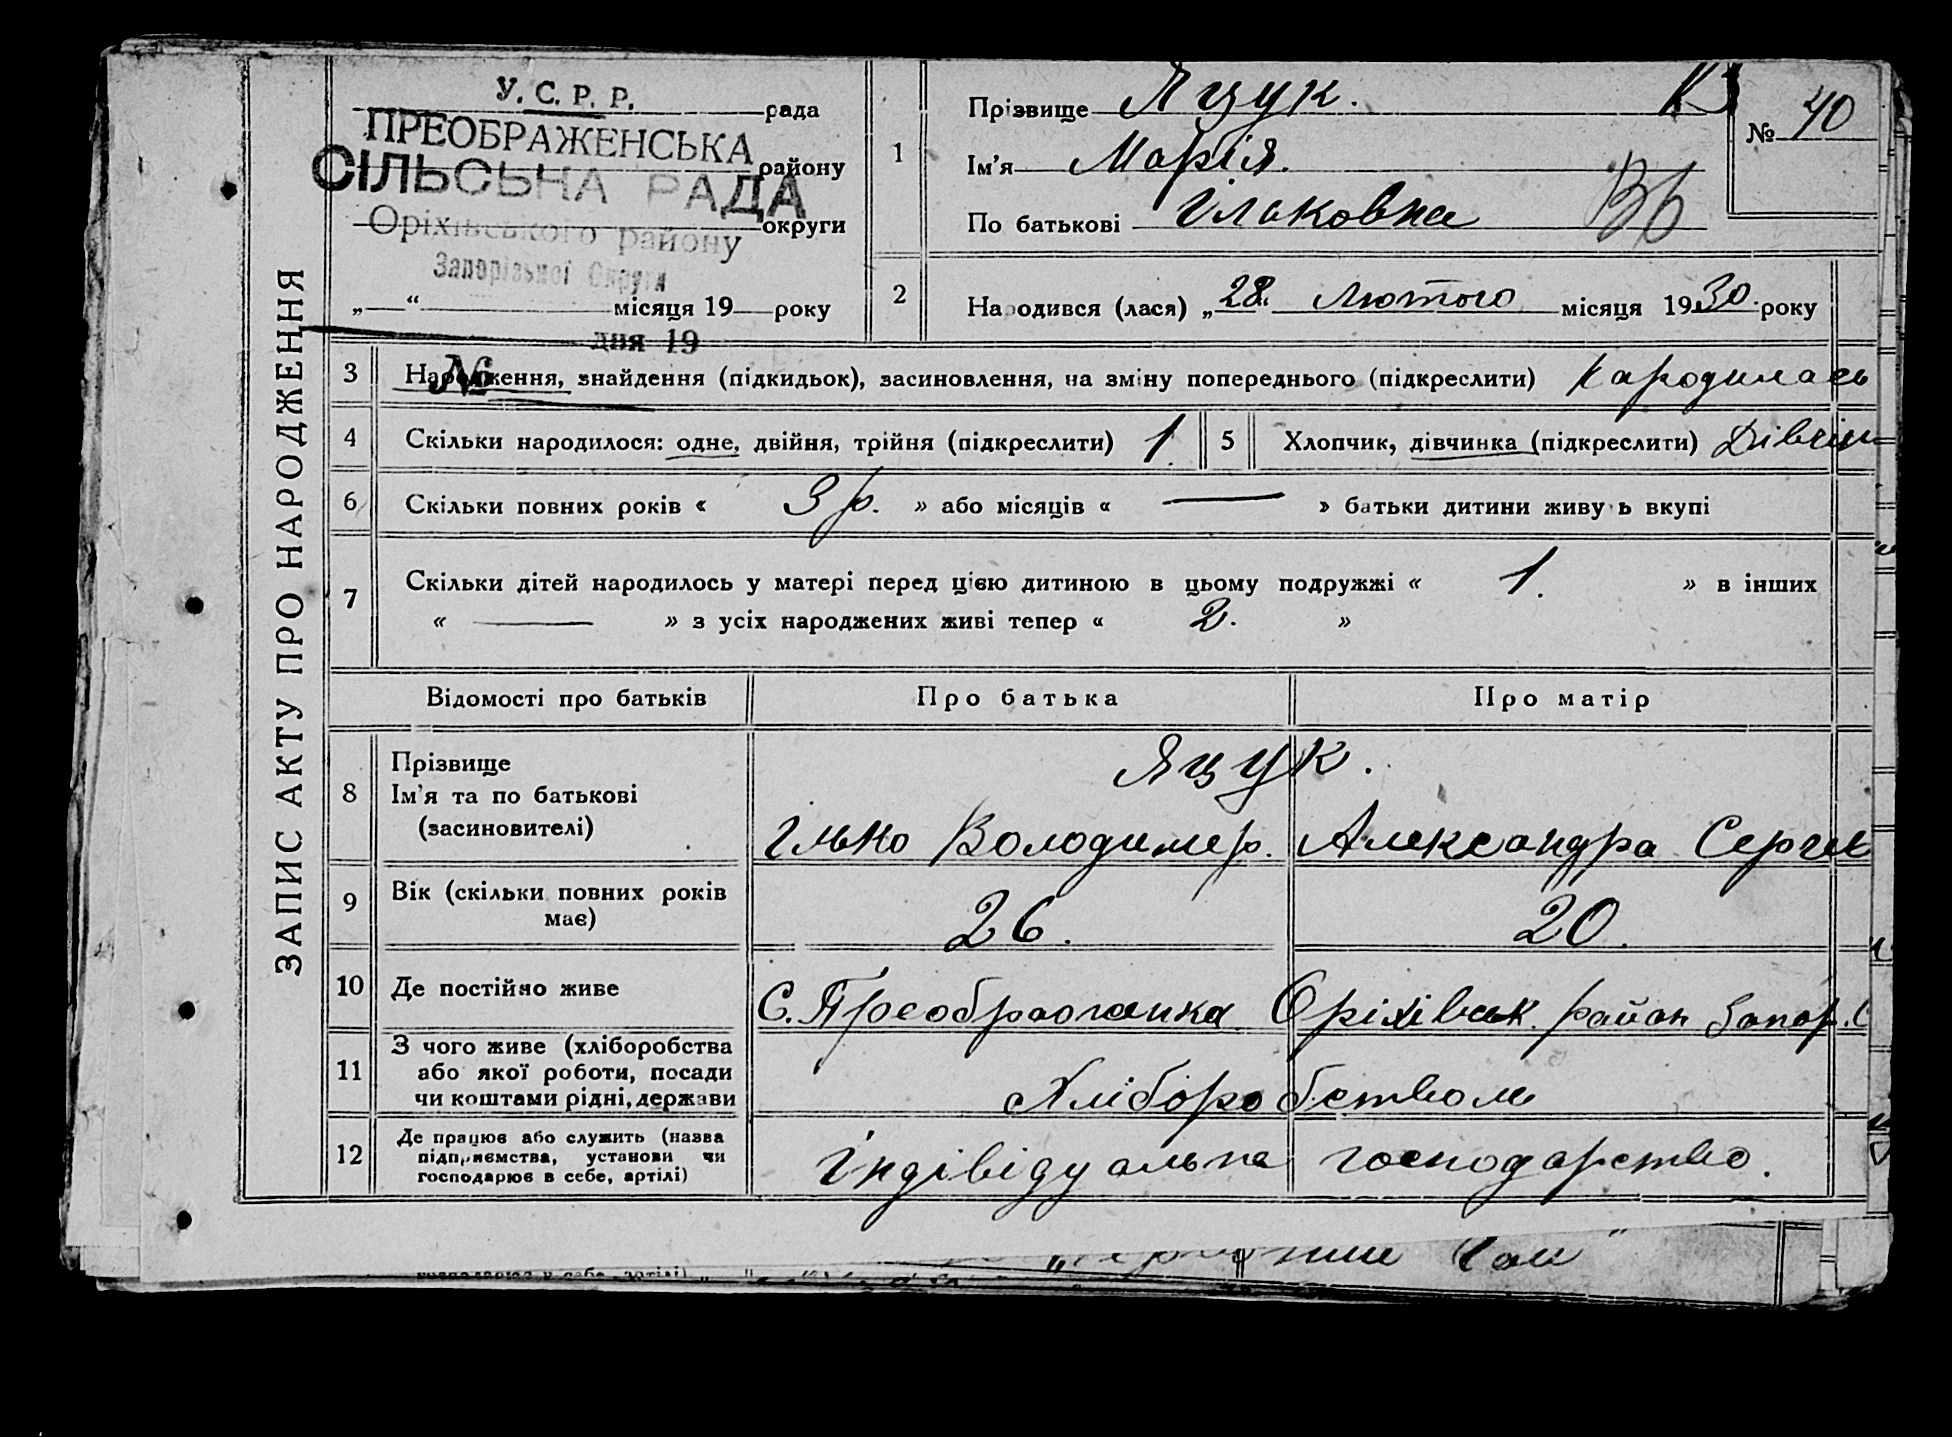 ЗАПИС АКТУ ПРО НАРОДЖЕННЯ
У. С. Р. Р.
рада
ПРЕОБРАЖЕНСЬКА
району
СІЛЬСЬКА РАДА
округи
Оріхівського району
Запорізької Округи
„ “ місяця 19 року
дня 19
№
1
Прізвище Яцук.
Ім'я Марія.
По батькові Ілаковна
№ 40
2
Народився (лася) „28“ Лютого місяця 1930 року
3 Народження, знайдення (підкидьок), засиновлення, на зміну попереднього (підкреслити) Народилась
4 Скільки народилося: одне, двійня, трійня (підкреслити) 1
5 Хлопчик, дівчинка (підкреслити) Дівчин
6 Скільки повних років « 3 р. » або місяців « — » батьки дитини живу ь вкупі
7 Скільки дітей народилось у матері перед цією дитиною в цьому подружжі « 1. » в інших
« — » з усіх народжених живі тепер « 2. »
Відомості про батьків Про батька Про матір
8 Прізвище
Ім'я та по батькові
(засиновителі)
Яцук.
Ілько Володимер. Александра Сергее
9 Вік (скільки повних років
має)
26. 20.
10 Де постійно живе С. Преображенка Оріхівськ. район Запор.
11 З чого живе (хліборобства
або якої роботи, посади
чи коштами рідні, держави
Хліборобством
12 Де працює або служить (назва
підприємства, установи чи
господарює в себе, артілі)
Індівідуальне господарство.